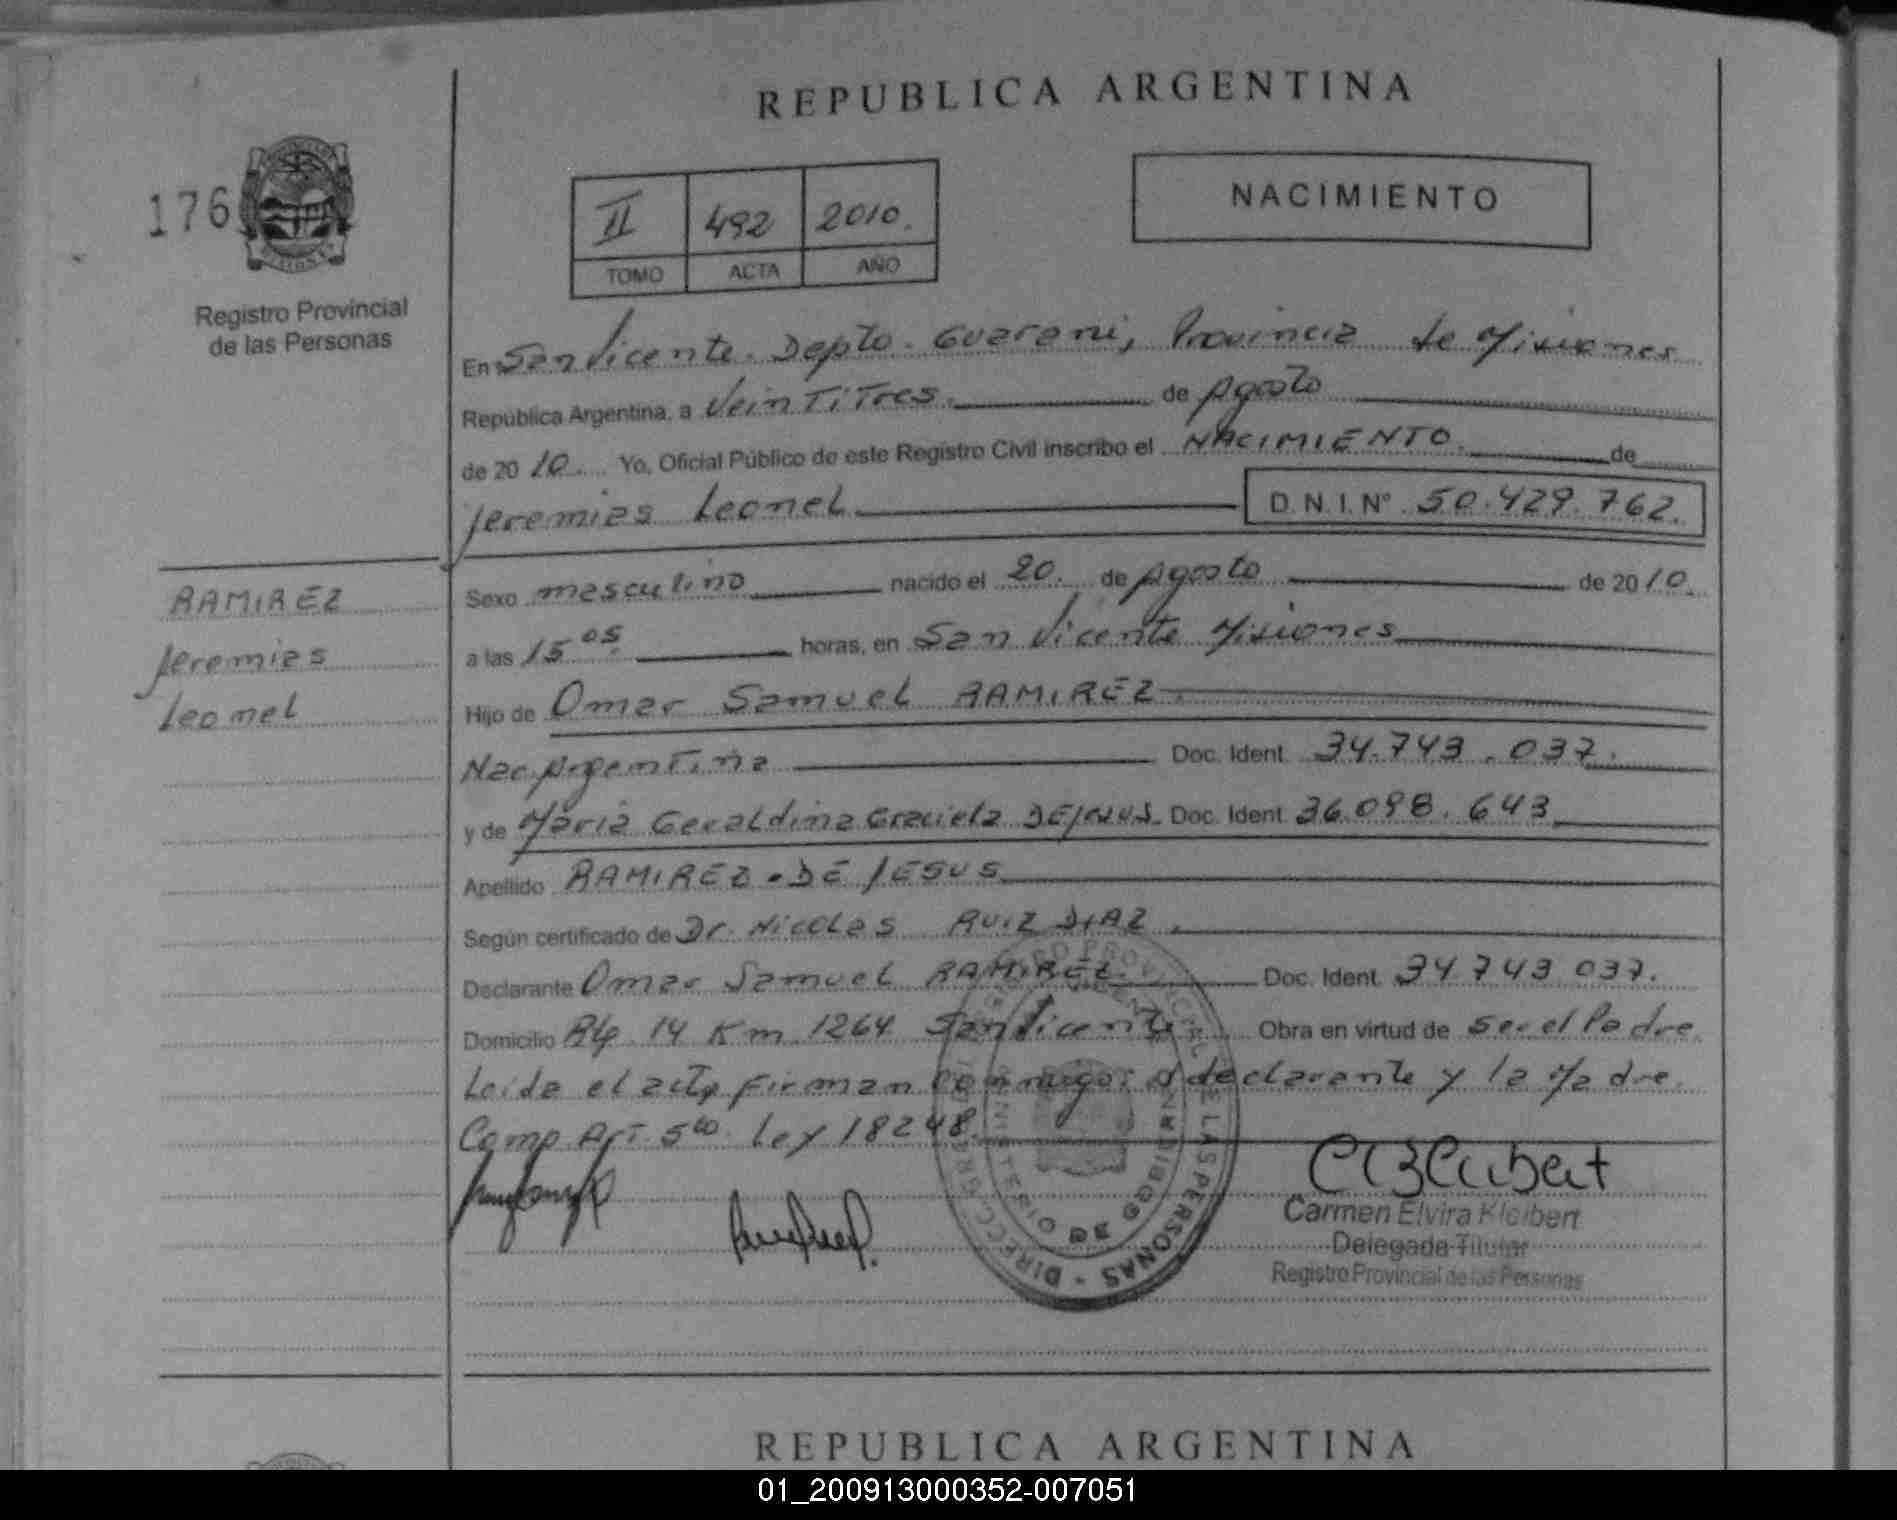 REPUBLICA ARGENTINA
176
II 492 2010.
TOMO ACTA AÑO
NACIMIENTO
Registro Provincial
de las Personas
En San Vicente. Depto. Guarani, Provincia de Misiones
República Argentina, a Veintitres. de Agosto
de 2010. Yo, Oficial Público de este Registro Civil inscribo el NACIMIENTO. de
Jeremias Leonel D.N.I. Nº 50.429.762.
RAMIREZ
Jeremias
Leonel
Sexo masculino nacido el 20. de Agosto de 2010.
a las 15 05. horas, en San Vicente Misiones
Hijo de Omar Samuel RAMIREZ.
Nac. Argentina Doc. Ident. 34.743.037.
y de Maria Geraldina Graciela DE JESUS. Doc. Ident. 36.098.643
Apellido RAMIREZ - DE JESUS
Según certificado de Dr. Nicolas RUIZ DIAZ.
Declarante Omar Samuel RAMIREZ. Doc. Ident. 34.743.037.
Domicilio 14 Km. 1264 San Vicente. Obra en virtud de ser el Padre.
Leida el acta, firman conmigo: el declarante y la Madre.
Comp. Art. 5to. Ley 18248.
Carmen Elvira Kleibert
Delegada Titular
Registro Provincial de las Personas
REPUBLICA ARGENTINA
01_200913000352-007051